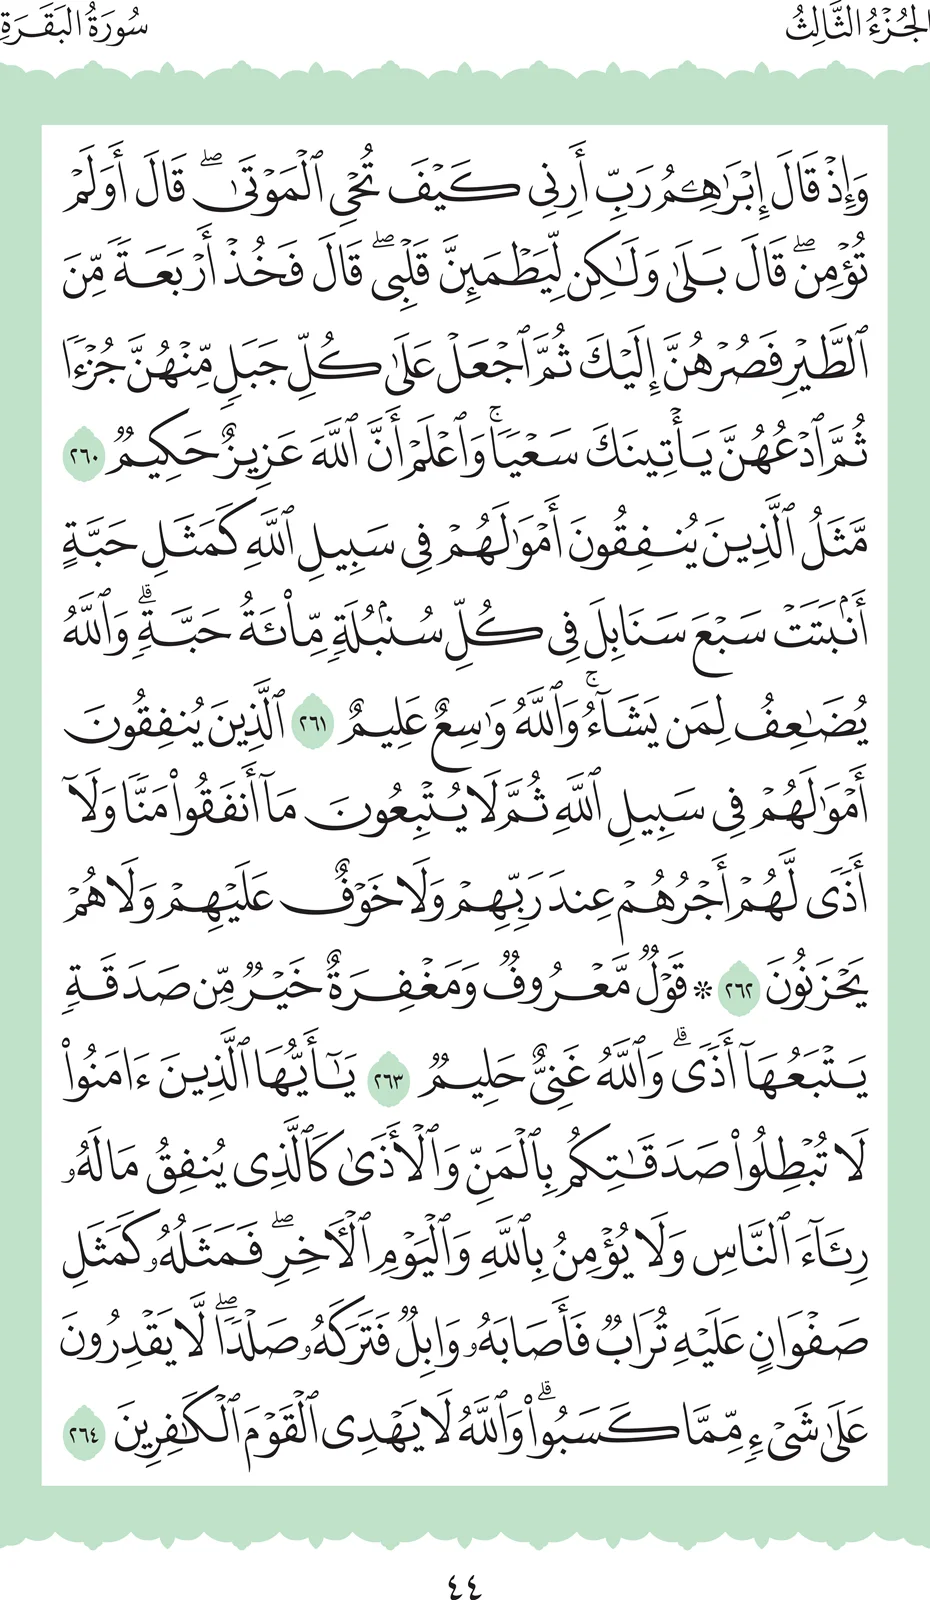 الجُزْءُ الثَّالِثُ
سُورَةُ البَقَرَةِ
وَإِذْ قَالَ إِبْرَٰهِـۧمُ رَبِّ أَرِنِى كَيْفَ تُحْىِ ٱلْمَوْتَىٰ ۖ قَالَ أَوَلَمْ
تُؤْمِن ۖ قَالَ بَلَىٰ وَلَٰكِن لِّيَطْمَئِنَّ قَلْبِى ۖ قَالَ فَخُذْ أَرْبَعَةً مِّنَ
ٱلطَّيْرِ فَصُرْهُنَّ إِلَيْكَ ثُمَّ ٱجْعَلْ عَلَىٰ كُلِّ جَبَلٍ مِّنْهُنَّ جُزْءًا
ثُمَّ ٱدْعُهُنَّ يَأْتِينَكَ سَعْيًا ۚ وَٱعْلَمْ أَنَّ ٱللَّهَ عَزِيزٌ حَكِيمٌ ٢٦٠
مَّثَلُ ٱلَّذِينَ يُنفِقُونَ أَمْوَٰلَهُمْ فِى سَبِيلِ ٱللَّهِ كَمَثَلِ حَبَّةٍ
أَنۢبَتَتْ سَبْعَ سَنَابِلَ فِى كُلِّ سُنۢبُلَةٍ مِّا۟ئَةُ حَبَّةٍ ۗ وَٱللَّهُ
يُضَٰعِفُ لِمَن يَشَآءُ ۚ وَٱللَّهُ وَٰسِعٌ عَلِيمٌ ٢٦١ ٱلَّذِينَ يُنفِقُونَ
أَمْوَٰلَهُمْ فِى سَبِيلِ ٱللَّهِ ثُمَّ لَا يُتْبِعُونَ مَآ أَنفَقُوا۟ مَنًّا وَلَآ
أَذًى لَّهُمْ أَجْرُهُمْ عِندَ رَبِّهِمْ وَلَا خَوْفٌ عَلَيْهِمْ وَلَا هُمْ
يَحْزَنُونَ ٢٦٢ ۞ قَوْلٌ مَّعْرُوفٌ وَمَغْفِرَةٌ خَيْرٌ مِّن صَدَقَةٍ
يَتْبَعُهَآ أَذًى ۗ وَٱللَّهُ غَنِىٌّ حَلِيمٌ ٢٦٣ يَٰٓأَيُّهَا ٱلَّذِينَ ءَامَنُوا۟
لَا تُبْطِلُوا۟ صَدَقَٰتِكُم بِٱلْمَنِّ وَٱلْأَذَىٰ كَٱلَّذِى يُنفِقُ مَالَهُۥ
رِئَآءَ ٱلنَّاسِ وَلَا يُؤْمِنُ بِٱللَّهِ وَٱلْيَوْمِ ٱلْءَاخِرِ ۖ فَمَثَلُهُۥ كَمَثَلِ
صَفْوَانٍ عَلَيْهِ تُرَابٌ فَأَصَابَهُۥ وَابِلٌ فَتَرَكَهُۥ صَلْدًا ۖ لَّا يَقْدِرُونَ
عَلَىٰ شَىْءٍ مِّمَّا كَسَبُوا۟ ۗ وَٱللَّهُ لَا يَهْدِى ٱلْقَوْمَ ٱلْكَٰفِرِينَ ٢٦٤
٤٤